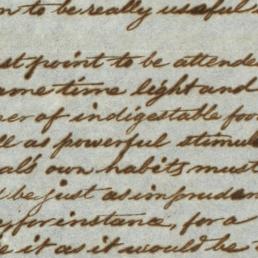 n to be really useful
st point to be attende
ame time light and
er of indigestable foo
ll as powerful stimul
al's own habits must
l be just as impruden
y, for instance, for a
e it as it would be